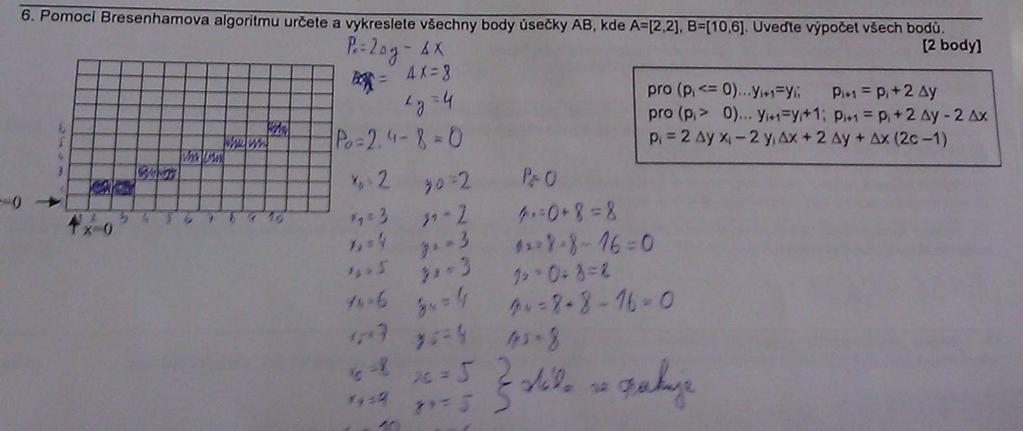 6. Pomocí Bresenhamova algoritmu určete a vykreslete všechny body úsečky AB, kde A=[2,2], B=[10,6]. Uveďte výpočet všech bodů.
[2 body]
P₀=2Δy - Δx
= Δx=8
Δy=4
P₀=2.4-8=0
pro (pᵢ <= 0)...yᵢ₊₁=yᵢ; pᵢ₊₁ = pᵢ + 2 Δy
pro (pᵢ > 0)... yᵢ₊₁=yᵢ+1; pᵢ₊₁ = pᵢ + 2 Δy - 2 Δx
pᵢ = 2 Δy xᵢ – 2 yᵢ Δx + 2 Δy + Δx (2c –1)
6
5
4
3
2
=0
1 2 3 4 5 6 7 8 9 10
x=0
x₀=2 y₀=2 P₀=0
x₁=3 y₁=2 p₁=0+8=8
x₂=4 y₂=3 p₂=8+8-16=0
x₃=5 y₃=3 p₃=0+8=8
x₄=6 y₄=4 p₄=8+8-16=0
x₅=7 y₅=4 p₅=8
x₆=8 y₆=5 } stále se opakuje
x₇=9 y₇=5
=10